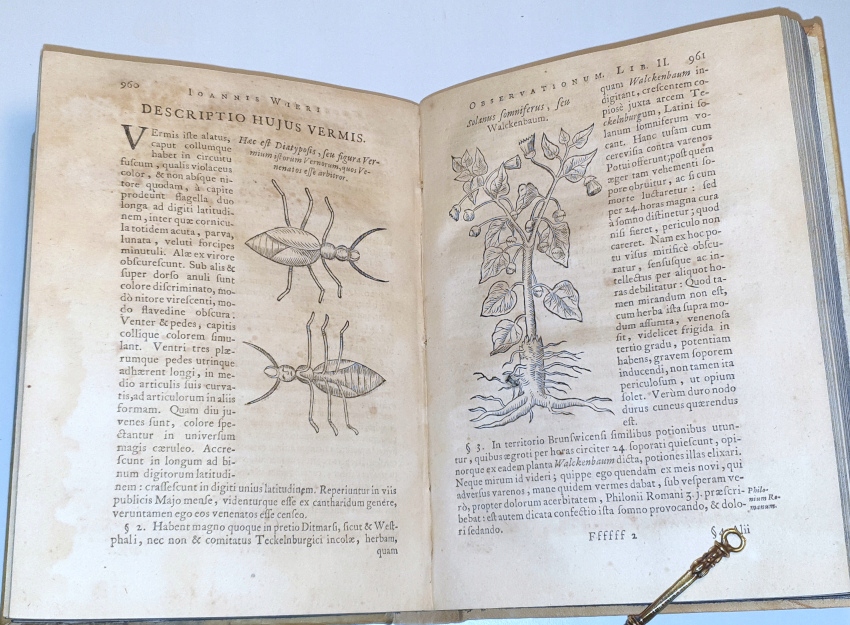 960
IOANNIS WIERI
DESCRIPTIO HUJUS VERMIS.
VErmis iste alatus,
caput collumque
habet in circuitu
fuscum, qualis violaceus
color, & non absque ni-
tore quodam, à capite
prodeunt flagella duo
longa ad digiti latitudi-
nem, inter quæ cornicu-
la totidem acuta, parva,
lunata, veluti forcipes
minutuli. Alæ ex virore
obscurescunt. Sub alis &
super dorso anuli sunt
colore discriminato, mo-
dò nitore virescenti, mo-
do flavedine obscura:
Venter & pedes, capitis
collique colorem simu-
lant. Ventri tres plæ-
rumque pedes utrinque
adhærent longi, in me-
dio articulis suis curva-
tis, ad articulorum in aliis
formam. Quam diu ju-
venes sunt, colore spe-
ctantur in universum
magis cæruleo. Accre-
scunt in longum ad bi-
num digitorum latitudi-
nem: crassescunt in digiti unius latitudinem. Reperiuntur in viis
publicis Majo mense, videnturque esse ex cantharidum genere,
veruntamen ego eos venenatos esse censeo.
§ 2. Habent magno quoque in pretio Ditmarsi, sicut & West-
phali, nec non & comitatus Teckelnburgici incolæ, herbam,
quam
Hæc est Diatyposis, seu figura Ver-
mium istorum Vernorum, quos Ve-
nenatos esse arbitror.
OBSERVATIONUM. LIB. II. 961
solanus somniferus, seu
Walckenbaum.
quam Walckenbaum in-
digitant, crescentem co-
piosè juxta arcem Te-
ckelnburgum, Latini so-
lanum somniferum vo-
cant. Hanc tusam cum
cerevisia contra varenos
Potui offerunt; post quem
æger tam vehementi so-
pore obruitur, ac si cum
morte luctaretur: sed
per 24. horas magna cura
a somno distinetur; quod
nisi fieret, periculo non
careret. Nam ex hoc po-
tu visus mirificè obscu-
ratur, sensusque ac in-
tellectus per aliquot ho-
ras debilitatur: Quod ta-
men mirandum non est,
cum herba ista supra mo-
dum assumta, venenosa
sit, videlicet frigida in
tertio gradu, potentiam
habens, gravem soporem
inducendi, non tamen ita
periculosum, ut opium
solet. Verùm duro nodo
durus cuneus quærendus
est.
§ 3. In territorio Brunswicensi similibus potionibus utun-
tur, quibus ægroti per horas circiter 24. soporati quiescunt, opi-
norque ex eadem planta Walckenbaum dicta, potiones illas elixari.
Neque mirum id videri; quippe ego quendam ex meis novi, qui
adversus varenos, mane quidem vermes dabat, sub vesperam ve-
rò, propter dolorum acerbitatem, Philonii Romani 3.j. præscri-
bebat: est autem dicata confectio ista somno provocando, & dolo-
ri sedando.
Philo-
nium Ro-
manum.
Ffffff 2